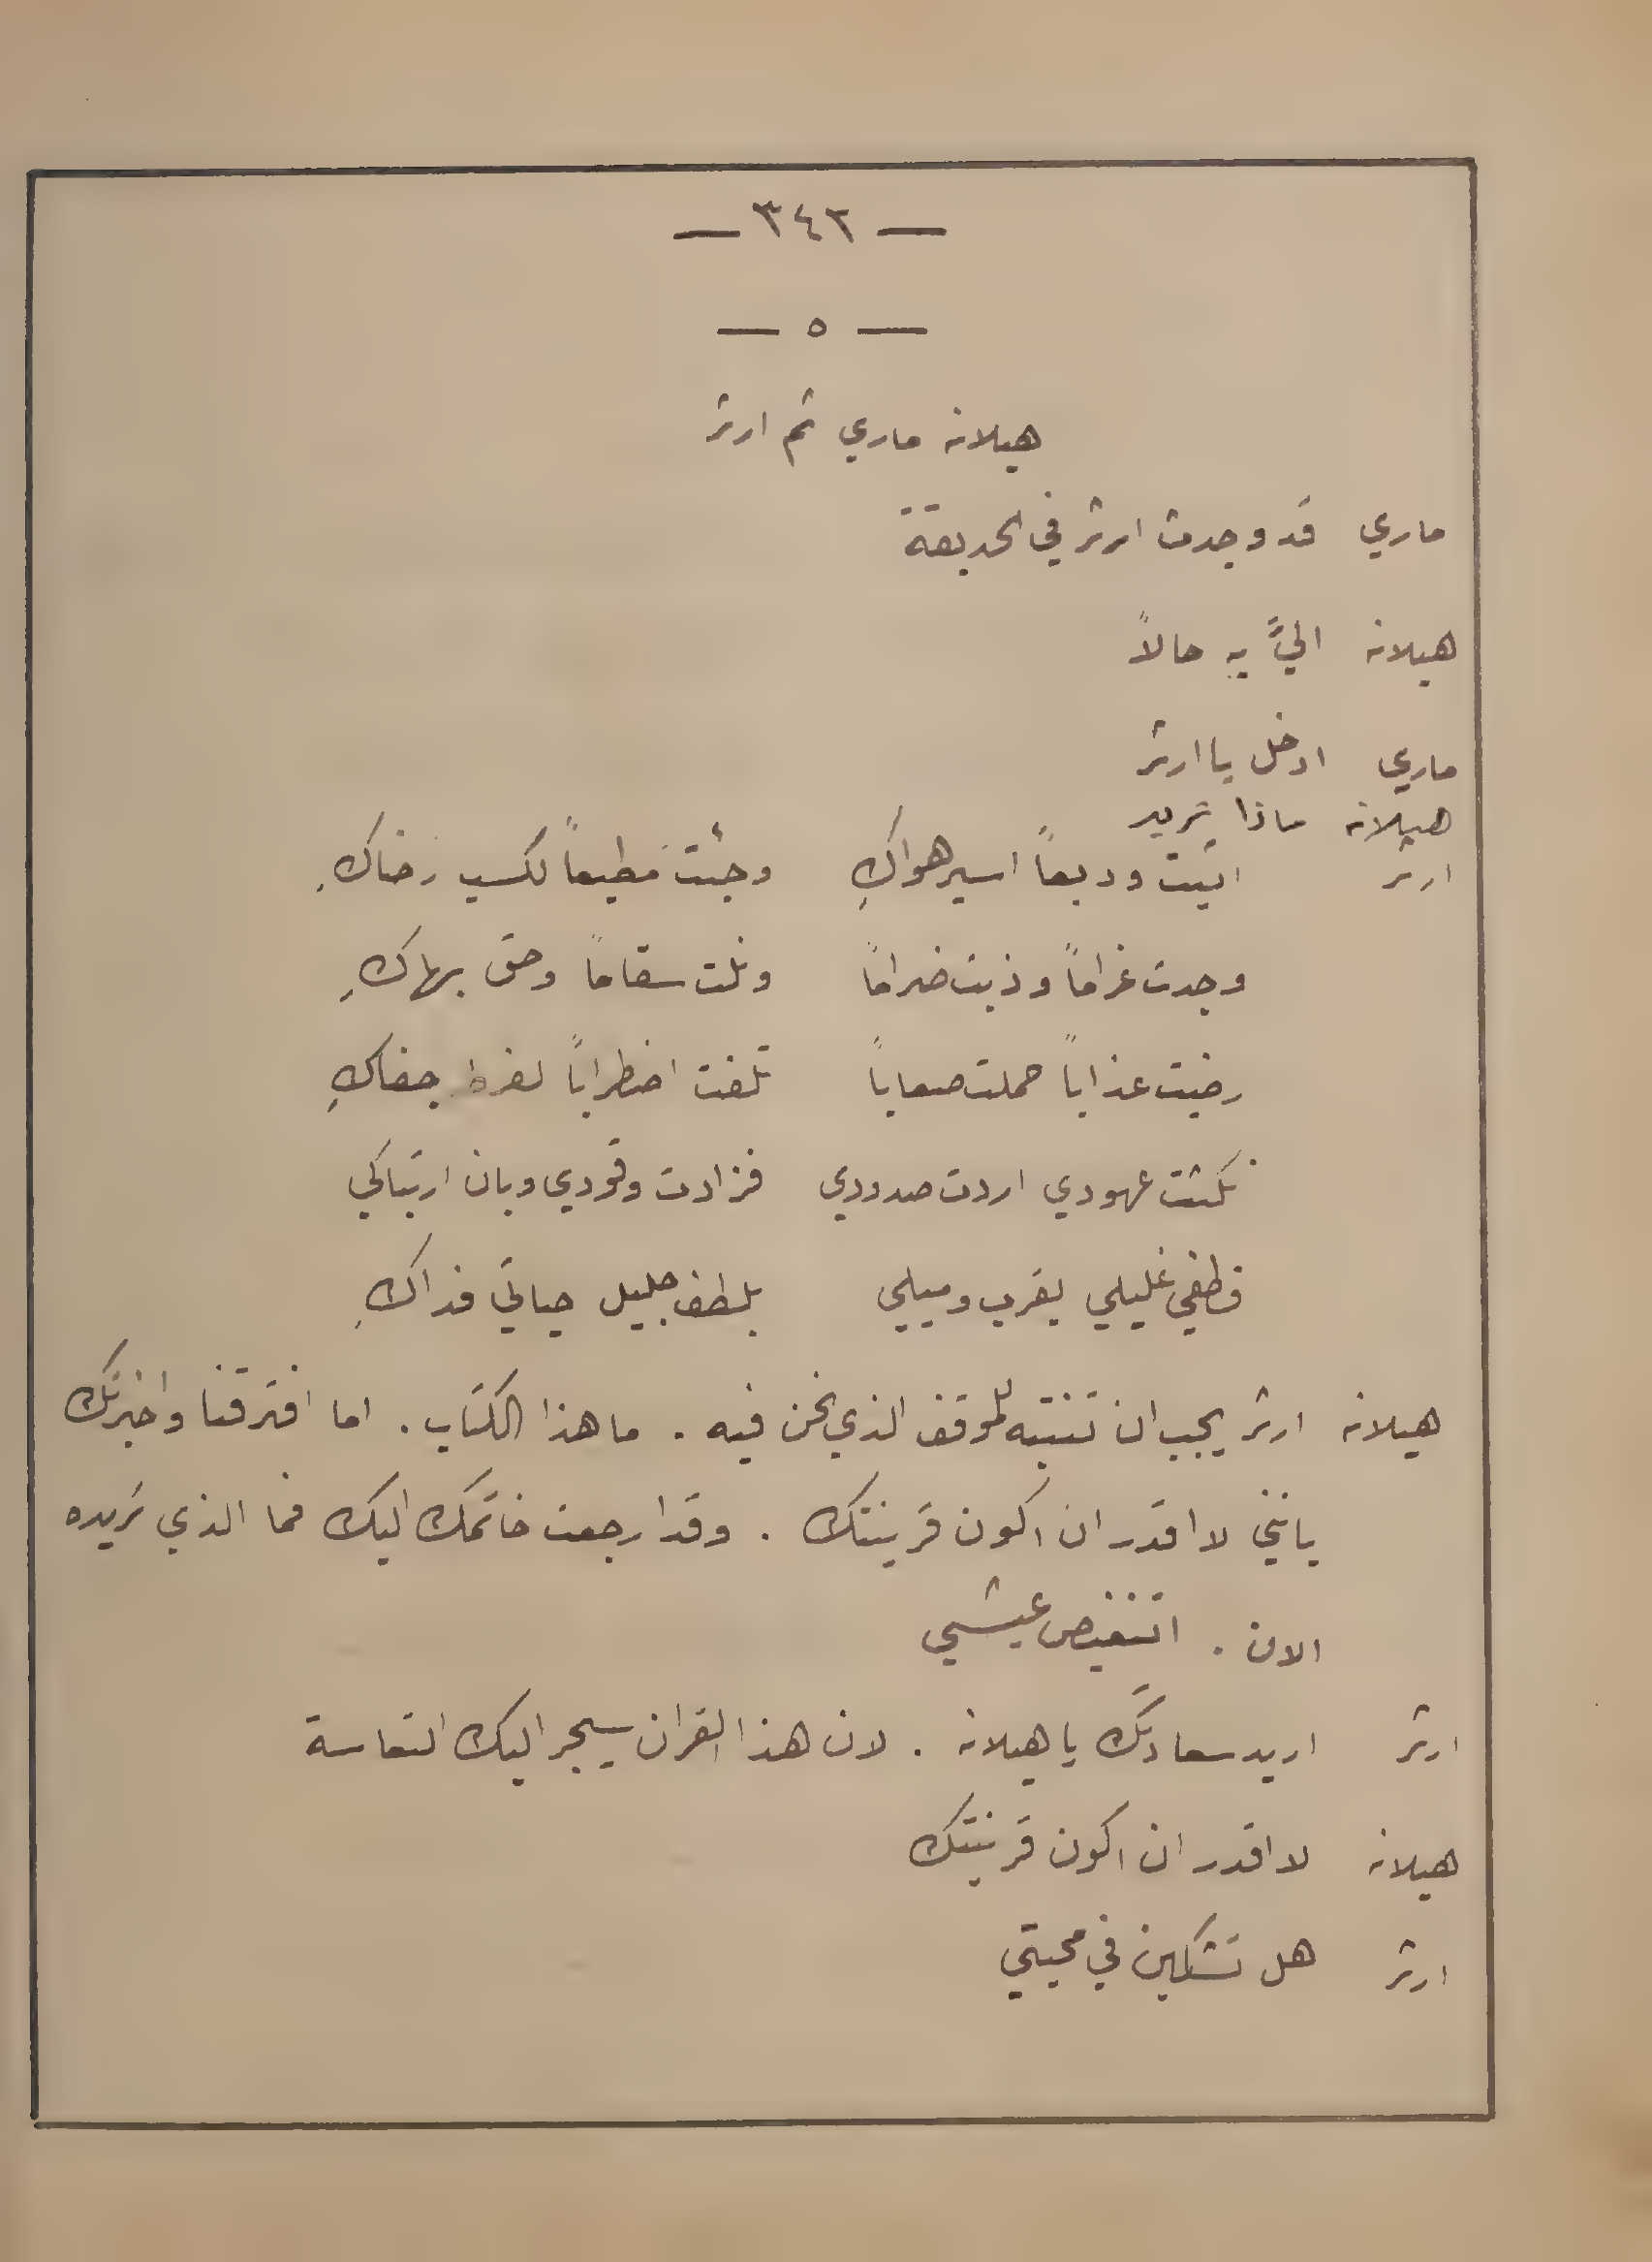 — ٣٤٢ —
— ٥ —
هيلانه ماري ثم ارثر
ماري قد وجدت ارثر في الحديقة
هيلانه اليَّ به حالاً
ماري ادخل يا ارثر
هيلانه ماذا تريد
ارثر اتيت وديعاً اسير هواكِ وجئت مطيعاً لكسب رضاكِ
وجدت غراماً وذبت ضراماً ونلت سقاماً وحق بهاكِ
رضيت عذاباً حملت صعاباً تلفت اضطراباً لفرط جفاكِ
نكثت عهودي اردت صدودي فزادت وقودي وبان ارتباكي
فطفي غليلي بقرب وميلي بلطف جليل حياتي فداكِ
هيلانه ارثر يجب ان تنتبه للموقف الذي نحن فيه . ما هذا الكتاب . اما افترقنا واخبرتك
بانني لا اقدر ان اكون قرينتك . وقد ارجعت خاتمك اليك فما الذي تريده
الان . اتنغيص عيشي
ارثر اريد سعادتك يا هيلانه . لان هذا القران سيجر اليك التعاسة
هيلانه لا اقدر ان اكون قرينتك
ارثر هل تشكين في محبتي